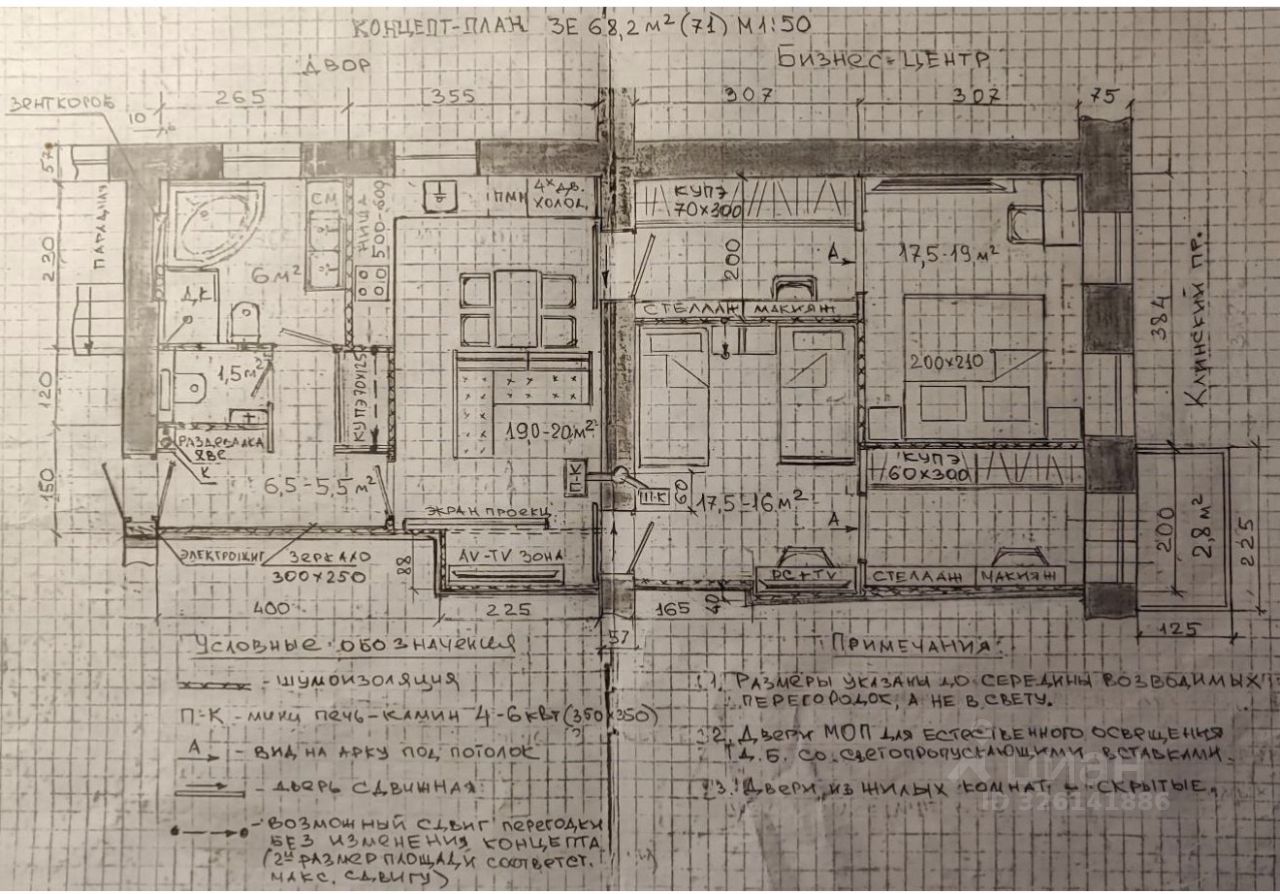 КОНЦЕПТ-ПЛАН 3Е 68,2 м² (71) М 1:50
ДВОР
БИЗНЕС-ЦЕНТР
ВЕНТКОРОБ
10
265
355
307
307
75
57
230
120
150
ПАРАДНАЯ
СМ
НИША
500-600
ПММ
4х ДВ.
ХОЛОД.
КУПЭ
70х300
200
А
17,5-19 м²
6 м²
Д.К
СТЕЛЛАЖ
МАКИЯЖ
384
КЛИНСКИЙ ПР.
200х210
1,5 м²
КУПЭ 70х125
РАЗДЕВАЛКА
ЯВЕ
К
190-20 м²
6,5-5,5 м²
П-К
П-К
60
17,5-16 м²
КУПЭ
60х300
А
ЭКРАН ПРОЕКЦ
AV-TV ЗОНА
PC+TV
СТЕЛЛАЖ
МАКИЯЖ
200
2,8 м²
225
ЗЕРКАЛО
300х250
88
400
225
165
40
57
125
УСЛОВНЫЕ ОБОЗНАЧЕНИЯ
- ШУМОИЗОЛЯЦИЯ
П-К - МИНИ ПЕЧЬ-КАМИН 4-6 кВт (350х350)
А - ВИД НА АРКУ ПОД ПОТОЛОК
- ДВЕРЬ СДВИЖНАЯ
- ВОЗМОЖНЫЙ СДВИГ ПЕРЕГОДКИ
БЕЗ ИЗМЕНЕНИЯ КОНЦЕПТА
(2й РАЗМЕР ПЛОЩАДИ СООТВЕТСТ.
МАКС. СДВИГУ)
ПРИМЕЧАНИЯ:
1. РАЗМЕРЫ УКАЗАНЫ ДО СЕРЕДИНЫ ВОЗВОДИМЫХ
ПЕРЕГОРОДОК, А НЕ В СВЕТУ.
2. ДВЕРИ МОП ДЛЯ ЕСТЕСТВЕННОГО ОСВЕЩЕНИЯ
Д.Б. СО СВЕТОПРОПУСКАЮЩИМИ ВСТАВКАМИ.
3. ДВЕРИ ИЗ ЖИЛЫХ КОМНАТ - СКРЫТЫЕ.
циан
ID 326141886